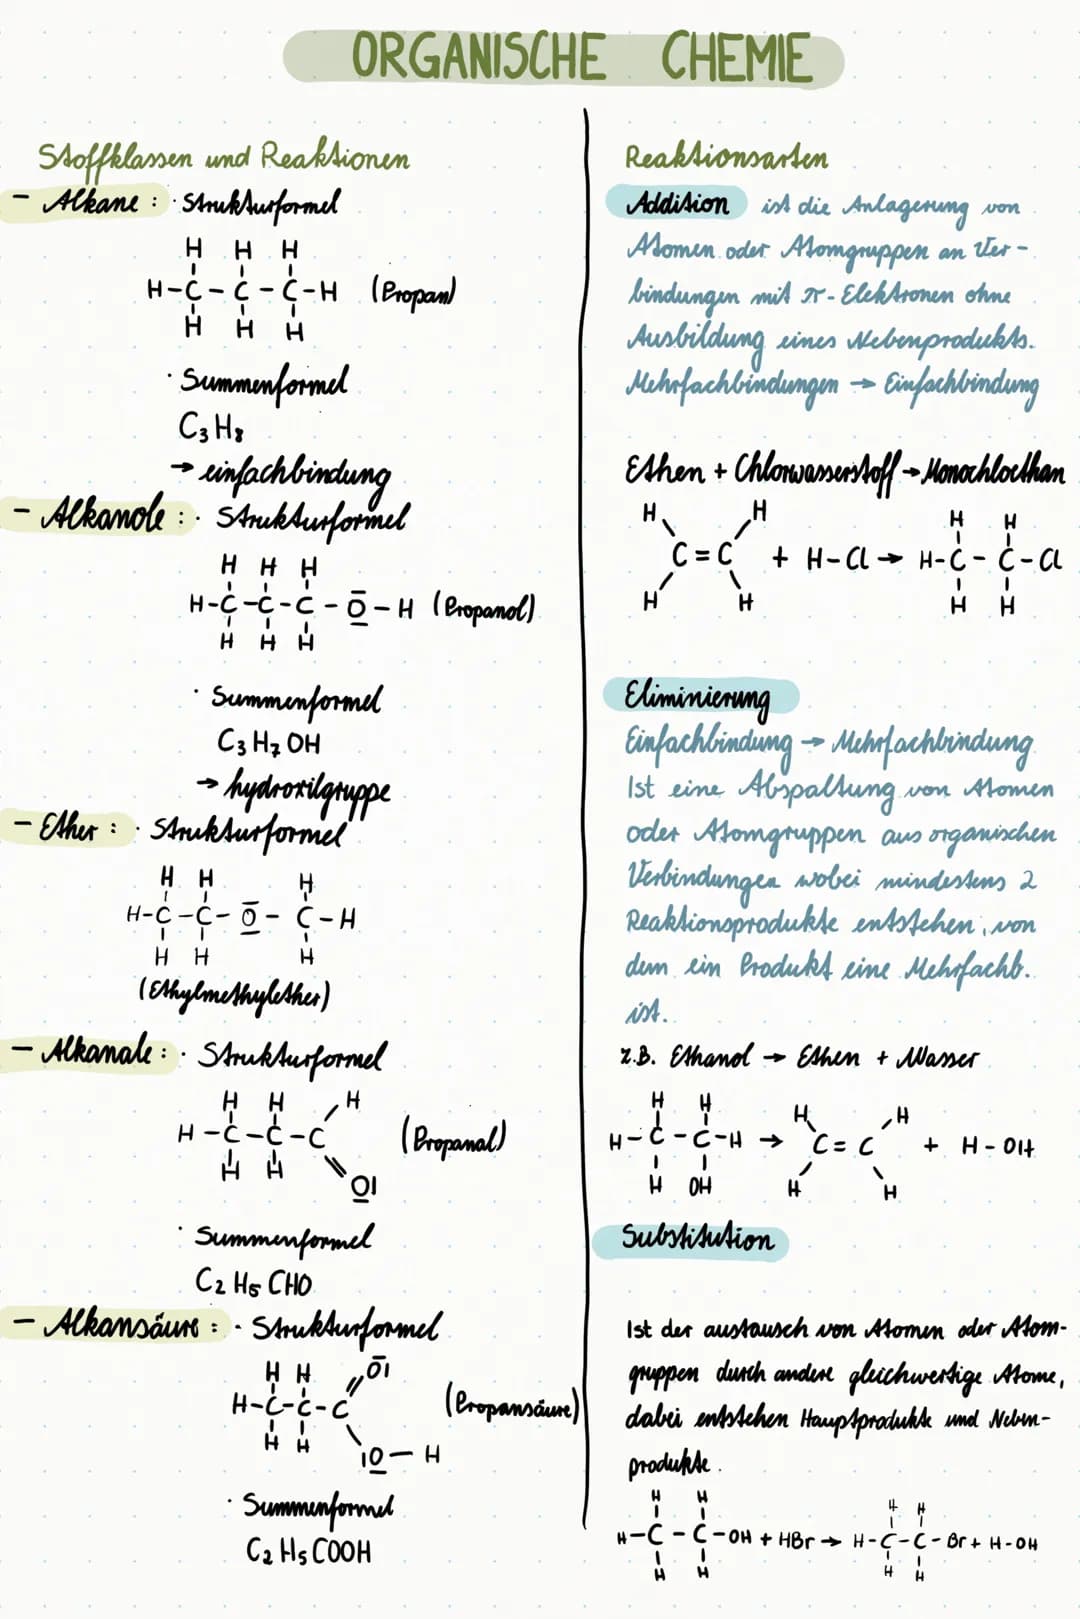 ORGANISCHE CHEMIE
Stoffklassen und Reaktionen
- Alkane : · Strukturformel
H H H
H-C-C-C-H (Propan)
H H H
· Summenformel
C3H8
→ einfachbindung
- Alkanole : · Strukturformel
H H H
H-C-C-C-O-H (Propanol)
H H H
· Summenformel
C3H7OH
→ hydroxilgruppe
- Ether : · Strukturformel
H H H
H-C-C-O-C-H
H H H
(Ethylmethylether)
- Alkanale : · Strukturformel
H H H
H-C-C-C (Propanal)
H H
O
· Summenformel
C2H5CHO
- Alkansäure : · Strukturformel
H H O
H-C-C-C (Propansäure)
H H
O-H
· Summenformel
C2H5COOH
Reaktionsarten
Addition ist die Anlagerung von
Atomen oder Atomgruppen an Ver-
bindungen mit π-Elektronen ohne
Ausbildung eines Nebenprodukts.
Mehrfachbindungen → Einfachbindung
Ethen + Chlorwasserstoff → Monochlorethan
H H H H
C=C + H-Cl → H-C-C-Cl
H H H H
Eliminierung
Einfachbindung → Mehrfachbindung
Ist eine Abspaltung von Atomen
oder Atomgruppen aus organischen
Verbindungen wobei mindestens 2
Reaktionsprodukte entstehen, von
dem ein Produkt eine Mehrfachb.
ist.
z.B. Ethanol → Ethen + Wasser
H H H H
H-C-C-H → C=C + H-OH
H OH H H
Substitution
Ist der austausch von Atomen oder Atom-
gruppen durch andere gleichwertige Atome,
dabei entstehen Hauptprodukte und Neben-
produkte.
H H H H
H-C-C-OH + HBr → H-C-C-Br + H-OH
H H H H